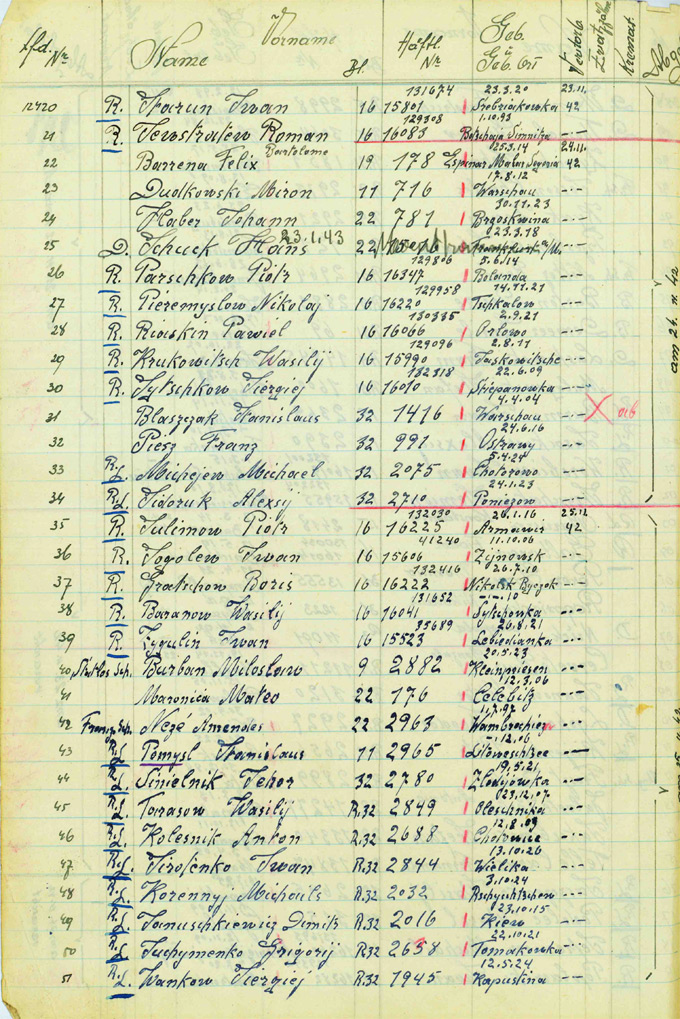 Lfd. Nr. Name Vorname Bl. Häftl. Nr. Geb. u. Geb. Ort Verstorb. Kremat.
131674 23.3.20 23.11.
12720 R. Iwan 16 15801 42
129308 1.10.93
21 R. Jewstratew Roman 16 16083
Bartolome 25.3.14 24.11.
22 Barrena Felix 19 178 Espinar 42
17.8.12
23 Dualkowski Miron 11 716 Warschau -·-
30.11.23
24 Haber Johann 22 781 -·-
23.1.43 23.3.18
25 D. Schuck Hans 22
129806 5.6.14
26 R. Parschkow Piotr 16 16347 Bolanda -·-
129958 14.11.21
27 R. Pieremyslow Nikolaj 16 16220 Tschkalow -·-
130385 2.9.21
28 R. Pawiol 16 16066 Orlowo -·-
129096 2.8.11
29 R. Krukowitsch Wasilij 16 15990 Jaskowitsche -·-
132318 22.6.09
30 R. Sytschkow Siergiej 16 16010 Stiepanowka -·-
4.4.04
31 Blaszczak Stanislaus 32 1416 Warschau X ab
24.6.16
32 Piesz Franz 32 991 Ostrawy -·-
5.4.24
33 R.L. Michejew Michael 32 2075 Chotorowo -·-
24.1.23
34 R.L. Sidoruk Alexsij 32 2710 Poniezow -·-
132030 20.1.16 25.12
35 R. Sulimow Piotr 16 16225 Armawir 42
41240 11.10.06
36 R. Sogolew Iwan 16 15606 Zijnowsk -·-
132416 26.7.10
37 R. Gratschow Boris 16 16222 Nikolsk -·-
131652 -·-·10
38 R. Baranow Wasilij 16 16041 Sytschowka -·-
35689 26.8.21
39 R. Zygulin Iwan 16 15523 Lebiedianka -·-
20.5.23
40 Sch. Burban Miloslaw 9 2882 Kleinpriesen -·-
12.3.06
41 Maronica Mateo 22 176 Celebitz -·-
42 Nezé Amendes 22 2963 Wambrechiez -·-
-·12.06
43 R.L. Pomysl Stanislaus 11 2965
19.5.21
44 R.L. Sinielnik Fehor 32 2780 Zlodijowka -·-
23.12.07
45 R.L. Tarasow Wasilij R.32 2849 Oleschnika -·-
12.8.09
46 R.L. Kolesnik Anton R.32 2688 Chotowice -·-
13.10.26
47 R.L. Tirosenko Iwan R.32 2844 Wielika -·-
3.10.24
48 R.L. Korennyj Michails R.32 2032 -·-
23.10.15
49 R.L. Januschkiewicz Dimitr R.32 2016 Kiew -·-
22.10.21
50 R.L. Tuchymenko Grigorij R32 2638 Tomakowka
12.5.24
51 R.L. Wankow Siergiej R.32 1945 Kapustina -·-
am 24. 11. 42